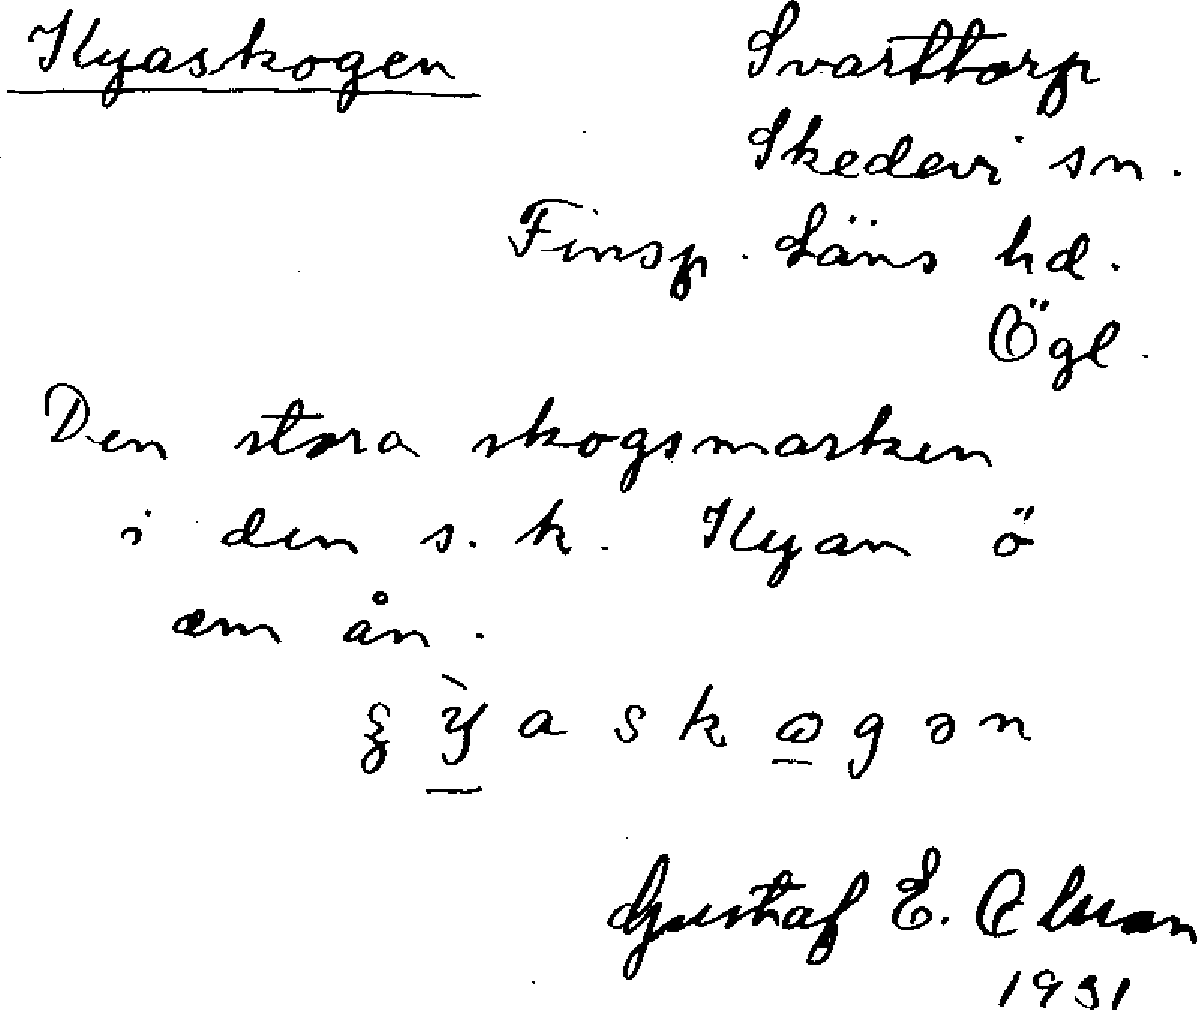 Kyaskogen
Svarttorp
Skedevi sn.
Finsp. Läns hd.
Ögl.
Den stora skogsmarken
i den s.k. Kyan ö
om ån.
Gustaf E.
1931